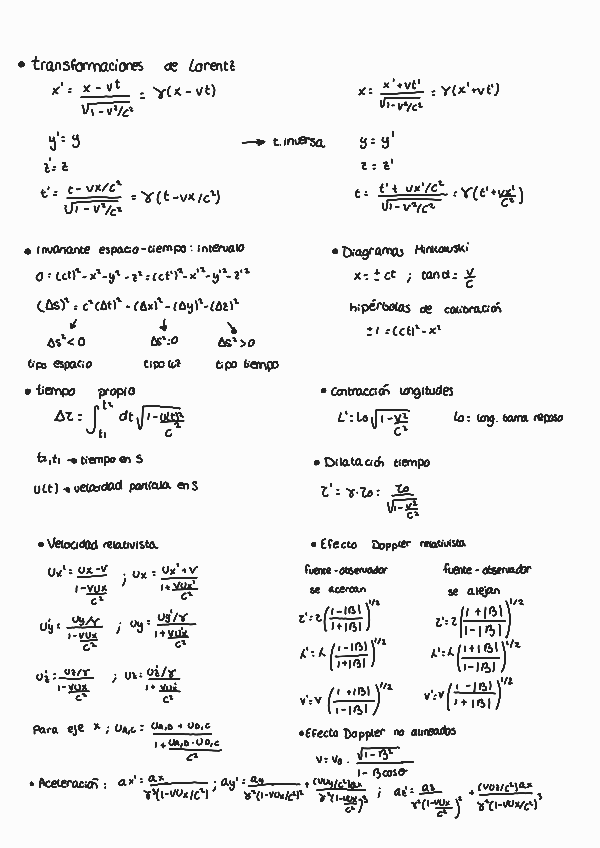 • transformaciones de Lorentz
x' = (x - vt)/√(1 - v²/c²) = γ(x - vt)
x = (x' + vt')/√(1 - v²/c²) = γ(x' + vt')
y' = y → t. inversa y = y'
z' = z z = z'
t' = (t - vx/c²)/√(1 - v²/c²) = γ(t - vx/c²)
t = (t' + vx'/c²)/√(1 - v²/c²) = γ(t' + vx'/c²)
• Invariante espacio-tiempo: intervalo
0 = (ct)² - x² - y² - z² = (ct')² - x'² - y'² - z'²
(Δs)² = c²(Δt)² - (Δx)² - (Δy)² - (Δz)²
Δs² < 0 Δs² = 0 Δs² > 0
tipo espacio tipo luz tipo tiempo
• Diagramas Minkowski
x = ± ct ; tan α = v/c
hipérbolas de calibración
± 1 = (ct)² - x²
• tiempo propio
Δτ = ∫_t1^t2 dt √(1 - u(t)²/c²)
t2, t1 → tiempo en S
u(t) → velocidad partícula en S
• Contracción longitudes
L' = Lo √(1 - v²/c²) Lo: long. barra reposo
• Dilatación tiempo
τ' = γ · τo = τo/√(1 - v²/c²)
• Velocidad relativista
Ux' = (Ux - v)/(1 - vUx/c²) ; Ux = (Ux' + v)/(1 + vUx'/c²)
Uy' = (Uy/γ)/(1 - vUx/c²) ; Uy = (Uy'/γ)/(1 + vUx'/c²)
Uz' = (Uz/γ)/(1 - vUx/c²) ; Uz = (Uz'/γ)/(1 + vUx'/c²)
Para eje x ; UA,C = (UA,B + UB,C)/(1 + UA,B · UB,C/c²)
• Efecto Doppler relativista
fuente-observador fuente-observador
se acercan se alejan
τ' = τ((1 - |β|)/(1 + |β|))^1/2 τ' = τ((1 + |β|)/(1 - |β|))^1/2
λ' = λ((1 - |β|)/(1 + |β|))^1/2 λ' = λ((1 + |β|)/(1 - |β|))^1/2
ν' = ν((1 + |β|)/(1 - |β|))^1/2 ν' = ν((1 - |β|)/(1 + |β|))^1/2
• Efecto Doppler no alineados
ν = ν0 · √(1 - β²)/(1 - β cos θ)
• Aceleración: ax' = ax/(γ³(1 - vUx/c²)³) ; ay' = ay/(γ²(1 - vUx/c²)²) + (vUy/c²)ax/(γ²(1 - vUx/c²)³) ; az' = az/(γ²(1 - vUx/c²)²) + (vUz/c²)ax/(γ²(1 - vUx/c²)³)